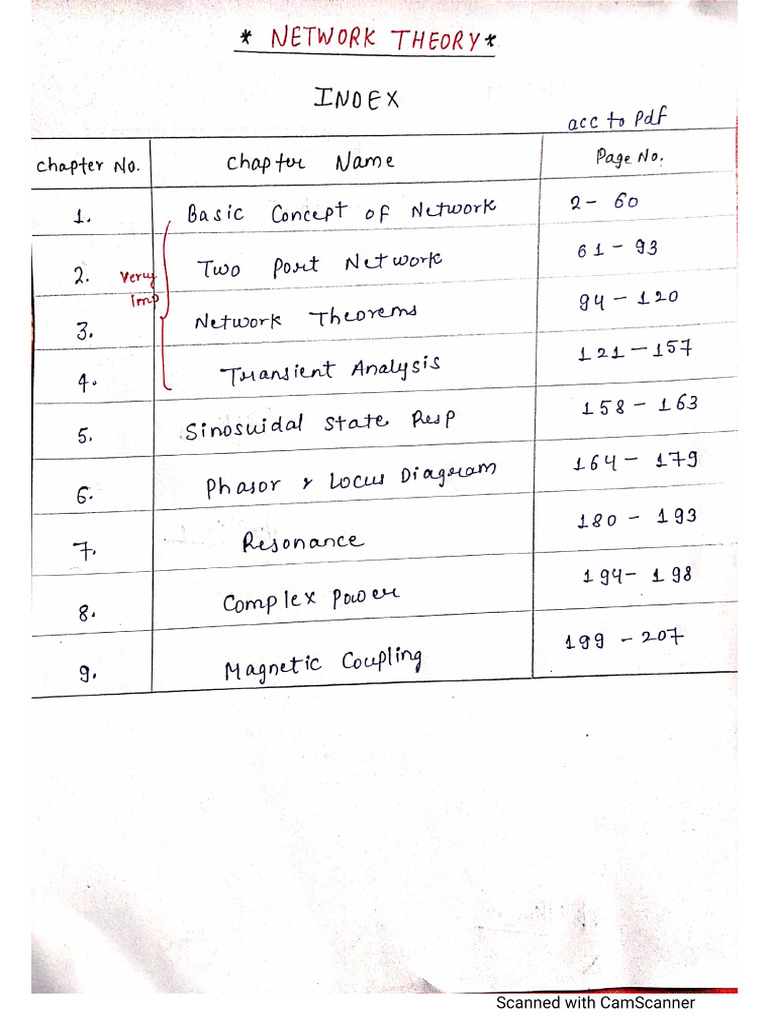 * NETWORK THEORY *
INDEX
acc to Pdf
Chapter No. Chapter Name Page No.
1. Basic Concept of Network 2 - 60
2. Two Port Network 61 - 93
Very
Imp
3. Network Theorems 94 - 120
4. Transient Analysis 121 - 157
5. Sinosuidal State Resp 158 - 163
6. Phasor & Locus Diagram 164 - 179
7. Resonance 180 - 193
8. Complex Power 194 - 198
9. Magnetic Coupling 199 - 207
Scanned with CamScanner